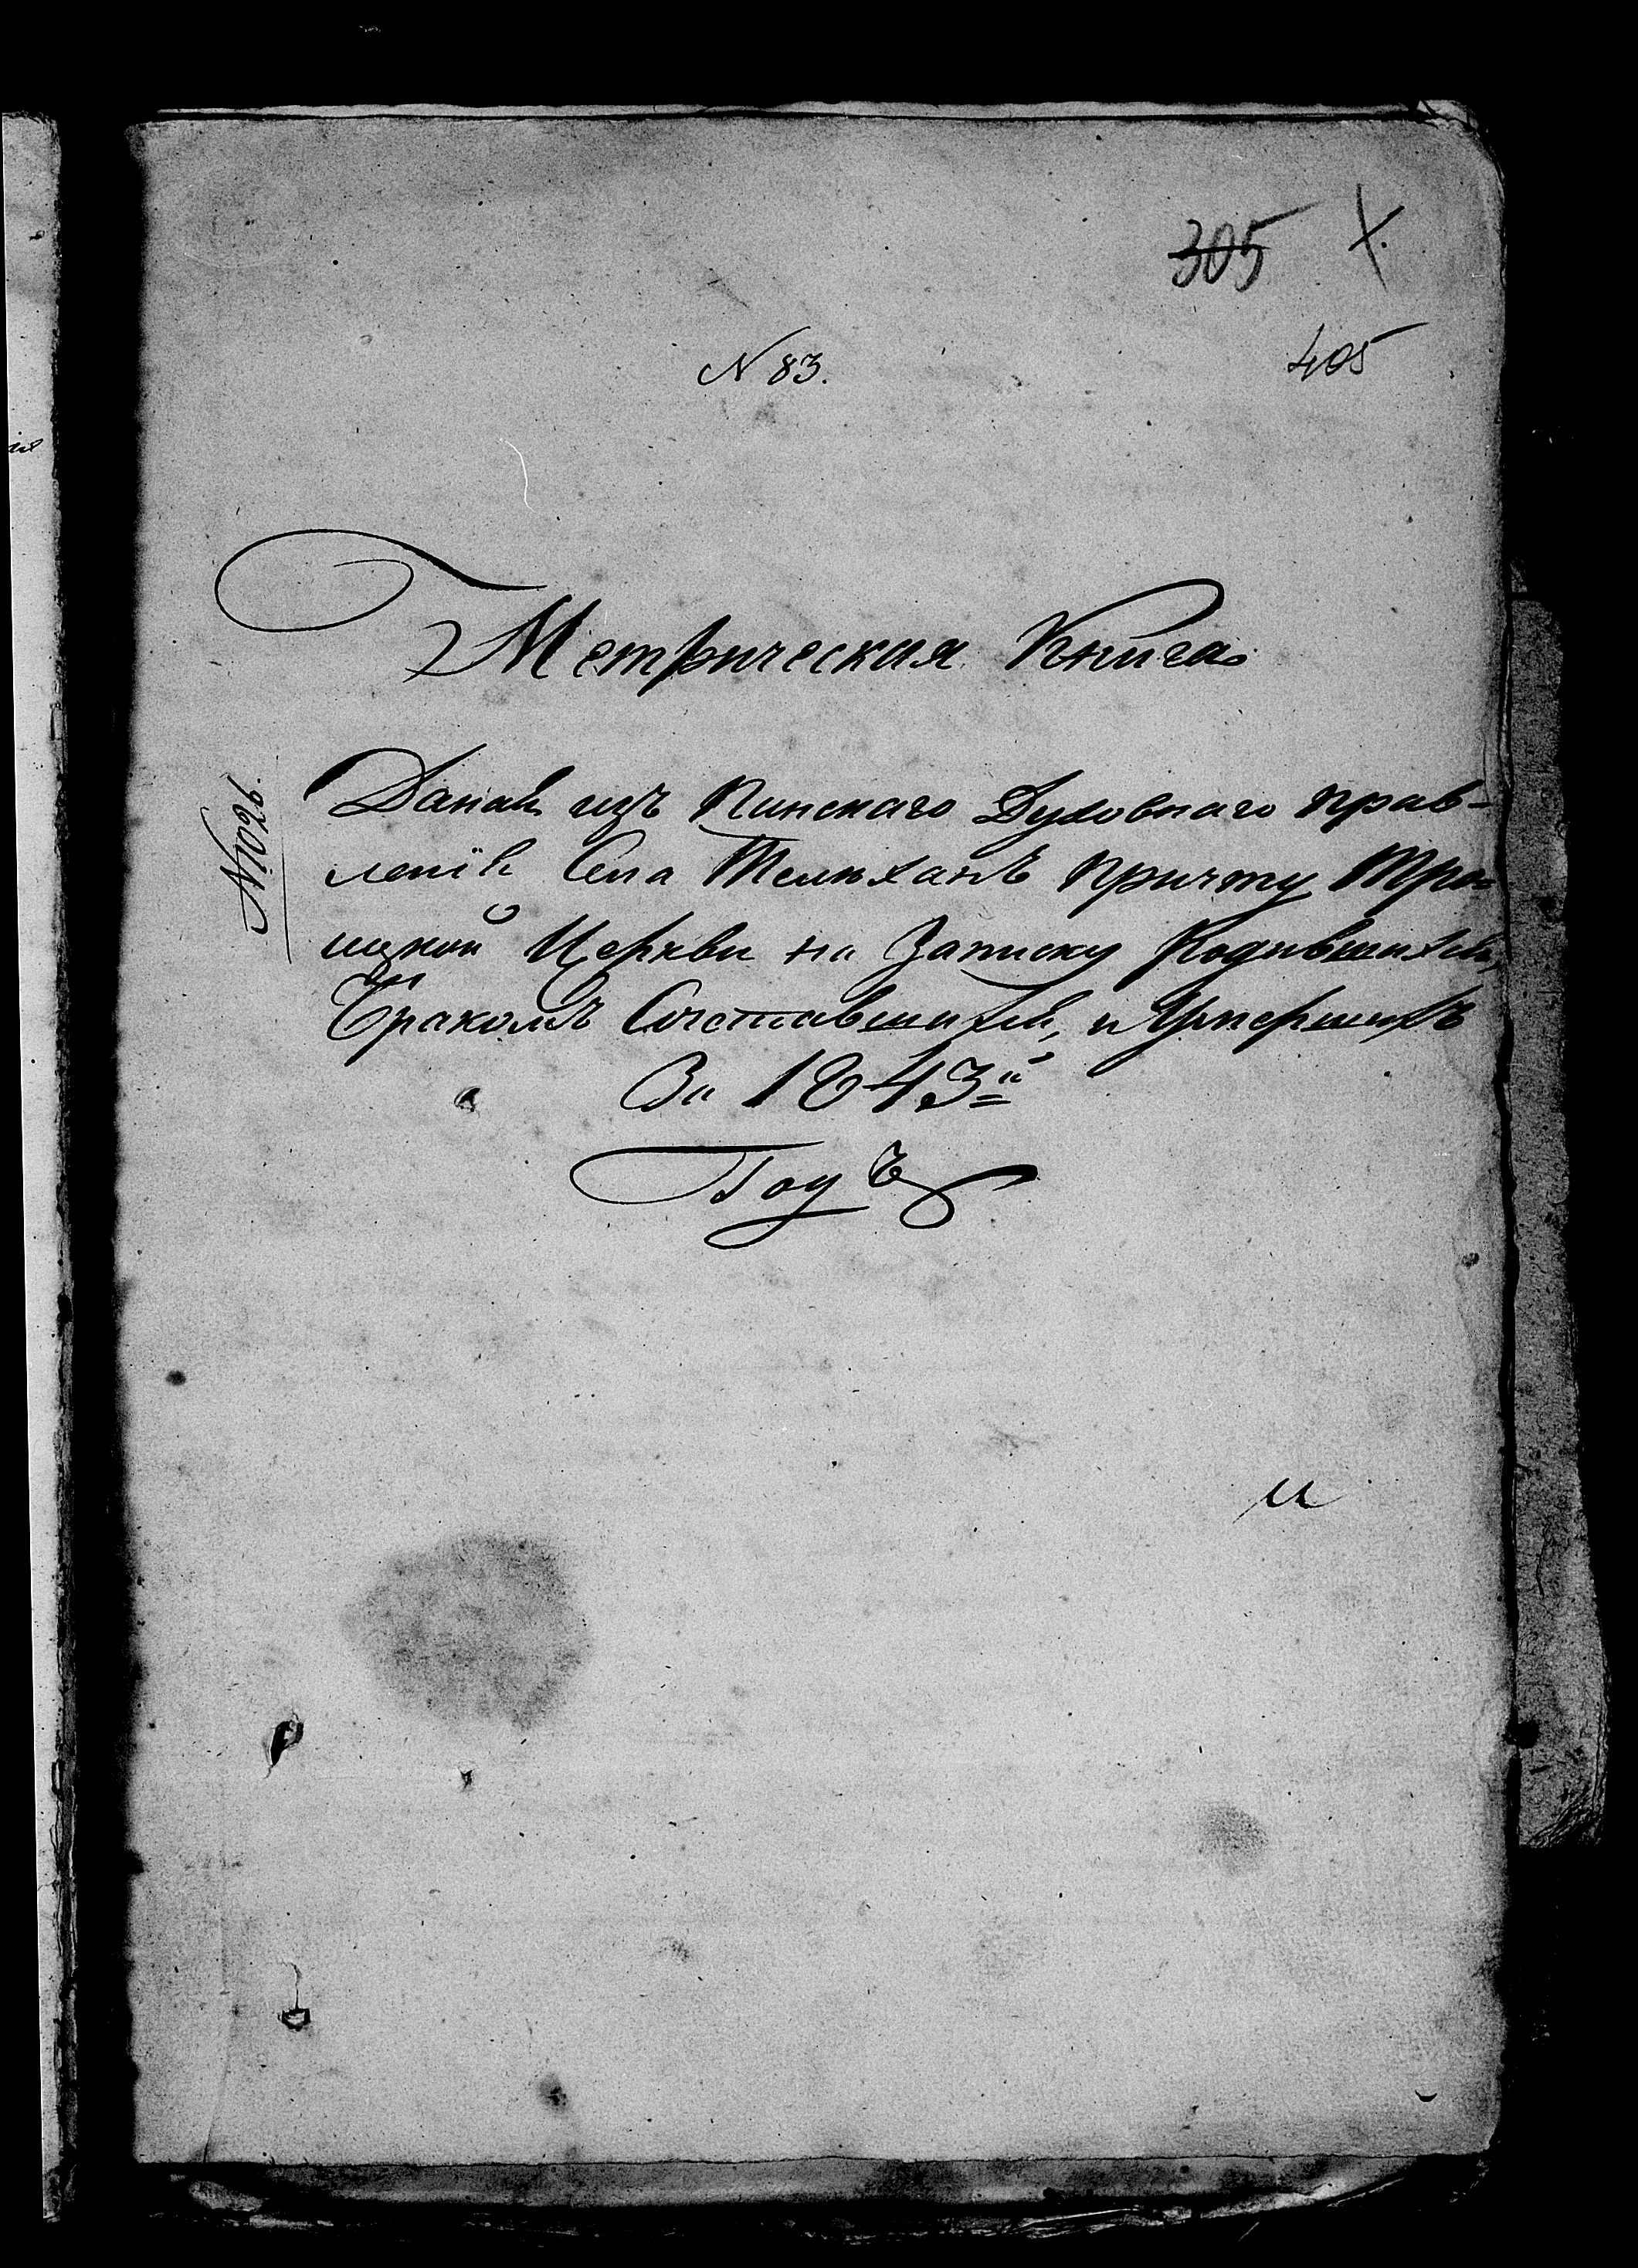 305 X.
N 83.
405
Метрическая Книга
N 1026.
Даная изъ Пинскаго Духовнаго прав-
ленія Села Телеханъ Причту Тро-
ицкой Церкви на Записку Родившихся,
Бракомъ Сочетавшихся, и Умершихъ
За 1843й
Годъ